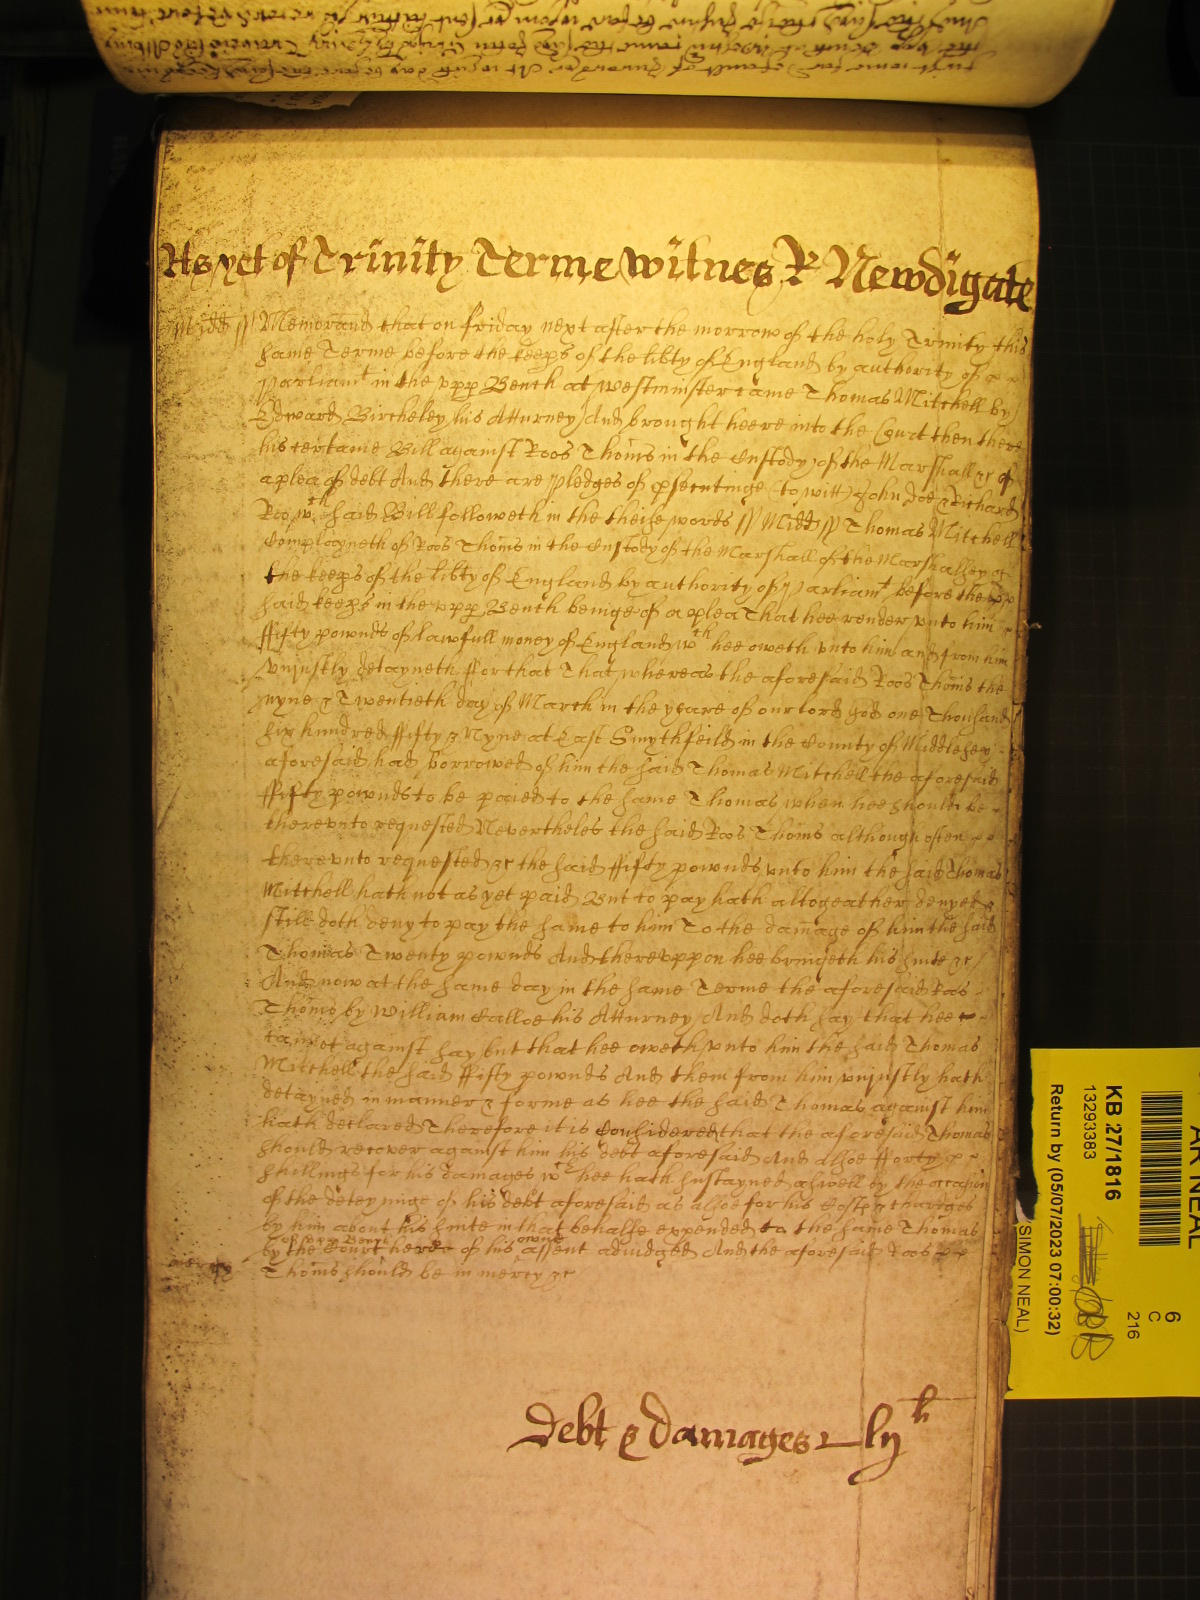 As yet of Trinity Terme witnes R Newdigate
Midd ss Memorand that on friday next after the morrow of the holy Trinity this
same Terme before the keeps of the libty of England by authority of
Parliamt in the upp Bench at westminster came Thomas Mitchell by
Edward Bircheley his Atturney And brought heere into the Court then there
his certaine Bill against Roos Thoms in the Custody of the Marshall &c of
a plea of debt And there are pledges of psecutinge (to witt) John Doe & Richard
Roo wch said Bill followeth in the theise words ss Midd ss Thomas Mitchell
Complayneth of Roos Thoms in the Custody of the Marshall of the Marshalsey of
the keeps of the libty of England by authority of Parliamt before the
said keeps in the upp Bench beinge of a plea That hee render unto him
ffifty pownds of lawfull money of England wch hee oweth unto him and from him
uniustly detayneth ffor that That whereas the aforesaid Roos Thoms the
nyne & Twentieth day of March in the yeare of our lord god one Thousand
six hundred ffifty & Nyne at East Smythfeild in the County of Middlesex
aforesaid had borrowed of him the said Thomas Mitchell the aforesaid
ffifty pownds to be paied to the same Thomas when hee should be
thereunto requested Nevertheles the said Roos Thoms although often
thereunto requested &c the said ffifty pownds unto him the said Thomas
Mitchell hath not as yet paid But to pay hath altogeather denyed &
still doth deny to pay the same to him To the damage of him the said
Thomas Twenty pownds And thereuppon hee bringeth his suite &c
And now at the same day in the same Terme the aforesaid Roos
Thoms by William Calloe his Atturney And doth say that hee
cannot against say but that hee oweth unto him the said Thomas
Mitchell the said ffifty pownds And them from him uniustly hath
detayned in manner & forme as hee the said Thomas against him
hath declared Therefore it is Considered that the aforesaid Thomas
should recover against him his debt aforesaid And allsoe fforty
shillings for his damages wch hee hath sustayned aswell by the occasion
of the deteyninge of his debt aforesaid as allsoe for his Costs & charges
by him about his suite in that behalfe expended to the same Thomas
of upper Bench owne
by the Court heere of his assent adiudged And the aforesaid Roos
Thoms should be in mercy &c
Debt & damages lijli
AR NEAL
KB 27/1816
13293383
Return by (05/07/2023 07:00:32)
(SIMON NEAL)
6
C
216